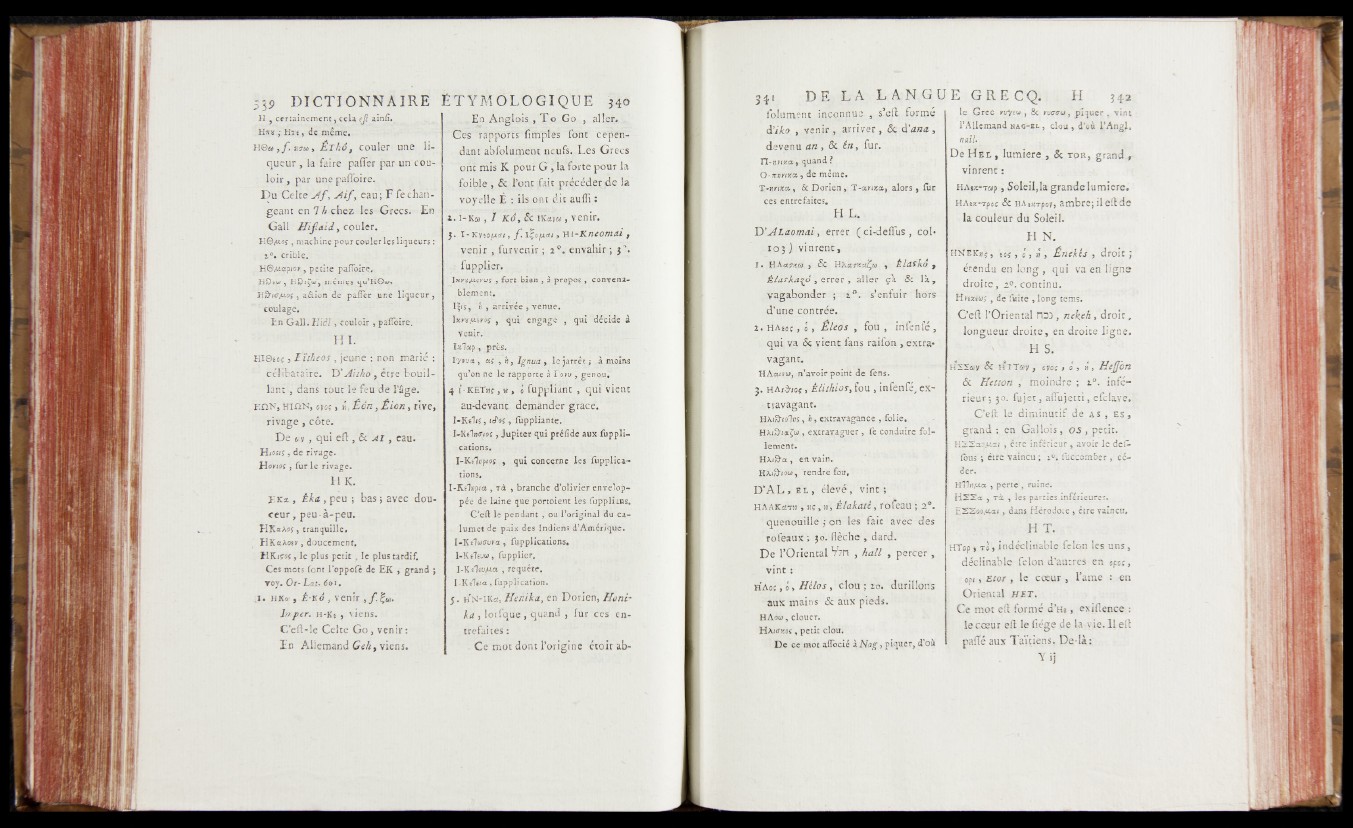 339 DICTIONNAIRE ÉTYMOLOGIQUE 340
H, certainement, cela eſt ainſi.
de même.
f. Éthó, couler une li-
queur, la faire paſſer par un cou-
loir, par une paſſoire.
Du Celte Af, Aif, eau; F ſe chan-
geant en Th chez les Grecs. En
Gall Hiſlaid, couler.
machine pour couler les liqueurs :
2°. crible.
petite paſſoire.
action de paſſer une liqueur,
coulage.
En Gall. Hidl, couloir, paſſoire.
H I.
Iïtheos, jeune : non marié :
célibataire. D'Aitho, être bouil-
lant, dans tout le feu de l'âge.
ΗΩΝ, ΗΙΩΝ, Één, Éion, rive,
rivage, côte.
De qui eſt, & AI, eau.
de rivage.
ſur le rivage.
H K.
ΗΚα, Éka, peu ; bas ; avec dou-
ceur, peu-à-peu.
ΗΚαλος, tranquille.
doucement.
le plus petit, le plus tardif.
Ces mots ſont l'oppoſé de EK, grand ;
voy. Or-Lat. 601.
1. ΗΚω, É-Kó, venir, f. ξω.
Imper. Η-Κε, viens.
C'eſt-le Celte Go, venir :
En Allemand Geh, viens.
En Anglois, To Go, aller.
Ces rapports ſimples ſont cepen-
dant abſolument neufs. Les Grecs
ont mis K pour G, la forte pour la
foible, & l'ont fait précéder de la
voyelle E : ils ont dit auſſi :
2. Ι-Κω, I Kó, & venir.
3. Hi-Kneomai,
venir, ſurvenir ; 2°. envahir ; 3°.
ſupplier.
fort bien, à propos, convena-
blement.
arrivée, venue.
qui engage, qui décide à
venir.
près.
Ignua, le jarret ; à moins
qu'on ne le rapporte à genou.
4 ἱ-ΚΕΤης, ου, ὁ ſuppliant, qui vient
au-devant demander grace.
ſuppliante.
Jupiter qui préſide aux ſuppli-
cations.
qui concerne les ſupplica-
tions.
branche d'olivier envelop-
pée de laine que portoient les ſupplians.
C'eſt le pendant, ou l'original du ca-
lumet de paix des Indiens d'Amérique.
ſupplications.
ſupplier.
requête.
ſupplication.
5. Henika, en Dorien, Hani-
ka, lorſque, quand, ſur ces en-
trefaites :
Ce mot dont l'origine étoit ab-
341 DE LA LANGUE GRECQ. H 342
ſolument inconnue, s'eſt formé
d'iko, venir, arriver, & d'ana,
devenu an, & én, ſur.
Π-ηνικα, quand ?
Ο-πηνικα, de même.
Τ-ηνικα, & Dorien, Τ-ανικα, alors, ſur
ces entrefaites.
H L.
D'ALaomai, errer (ci-deſſus, col.
103) vinrent,
1. & Élaskó,
Élaskazó, errer, aller çà & là,
vagabonder ; 2°. s'enfuir hors
d'une contrée.
2. ΗΛεος, ὁ, Éleos, fou, inſenſé,
qui va & vient ſans raiſon, extra-
vagant.
n'avoir point de ſens.
3. Élithios, fou, inſenſé, ex-
travagant.
extravagance, folie.
extravaguer, ſe conduire fol-
lement.
en vain.
rendre fou.
D'AL, EL, élevé, vint ;
Élakaté, roſeau ; 2°.
quenouille ; on les fait avec des
roſeaux ; 3o. flèche, dard.
De l'Oriental hall, percer,
vint :
ΗΛος, ὁ, Hélos, clou ; 2o. durillons
aux mains & aux pieds.
ΗΛοω, clouer.
petit clou.
De ce mot aſſocié à Nag, piquer, d'où
le Grec & piquer, vint
l'Allemand NAG-EL, clou, d'où l'Angl.
nail.
De HEL, lumiere, & TOR, grand,
vinrent :
Soleil, la grande lumiere.
& ambre; il eſt de
la couleur du Soleil.
H N.
ΗΝΕΚης, Énekés, droit ;
étendu en long, qui va en ligne
droite, 2°. continu.
de ſuite, long tems.
C'eſt l'Oriental נכח, nekeh, droit,
longueur droite, en droite ligne.
H S.
ΗΣΣων & ΗΤΤων, ονος, ὁ, ἡ, Heſſon
& Hetton, moindre ; 2°. infé-
rieur ; 3o. ſujet, aſſujetti, eſclave.
C'eſt le diminutif de AS, ES,
grand ; en Gallois, OS, petit.
être inférieur, avoir le deſ-
ſous ; être vaincu ; 2°. ſuccomber, cé-
der.
perte, ruine.
les parties inférieures.
dans Hérodote, être vaincu.
H T.
ΗΤορ, τὸ, indéclinable ſelon les uns,
déclinable ſelon d'autres en ορος,
ορι, Etor, le cœur, l'ame : en
Oriental HET.
Ce mot eſt formé d'He, exiſtence :
le cœur eſt le ſiége de la vie. Il eſt
paſſé aux Taïtiens. De-là :
Y ij